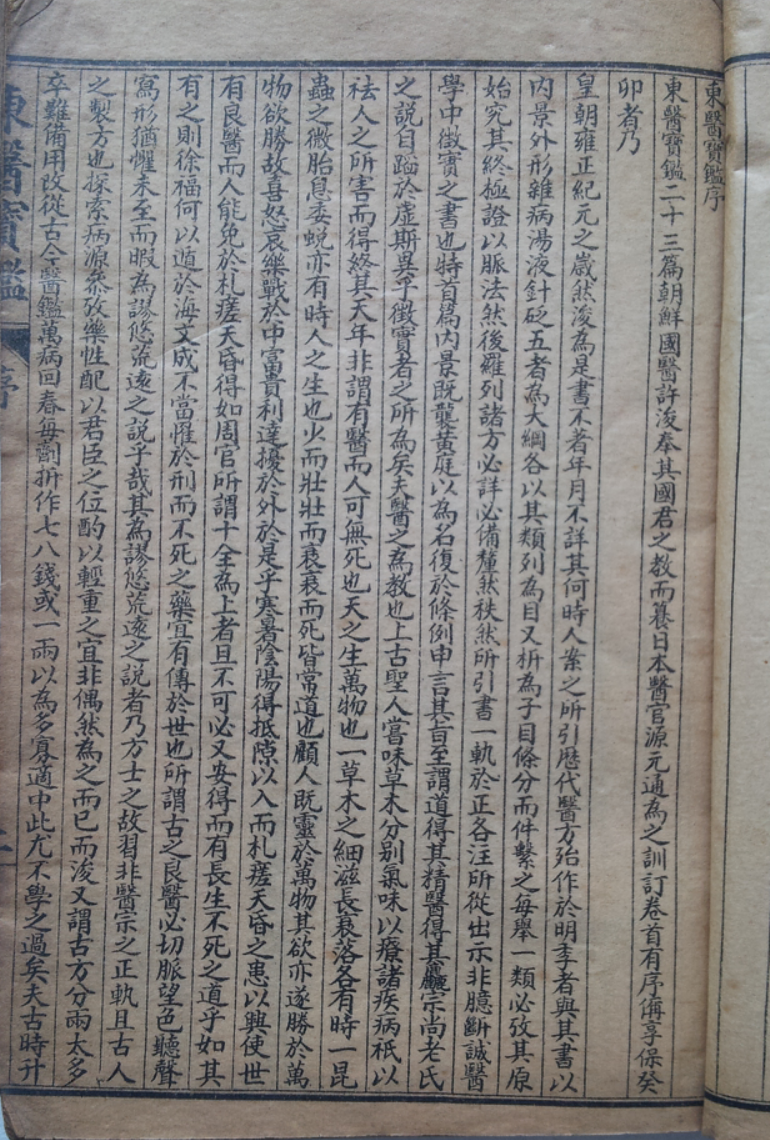 東醫寶鑑序
東醫寶鑑二十三篇朝鮮國醫許浚奉其國君之教而纂日本醫官源元通為之訓訂卷首有序偁享保癸
卯者乃
皇朝雍正紀元之歲然浚為是書不著年月不詳其何時人案之所引歷代醫方殆作於明季者與其書以
內景外形雜病湯液針砭五者為大綱各以其類列為目又析為子目條分而件繫之每舉一類必攷其原
始究其終極證以脈法然後羅列諸方必詳必備釐然秩然所引書一軌於正各注所從出示非臆斷誠醫
學中徵實之書也特首篇內景既襲黃庭以為名復於條例申言其旨至謂道得其精醫得其麤宗尚老氏
之說自蹈於虛斯異乎徵實者之所為矣夫醫之為教也上古聖人嘗味草木分別氣味以療諸疾病祇以
祛人之所害而得終其天年非謂有醫而人可無死也天之生萬物也一草木之細滋長衰落各有時一昆
蟲之微胎息委蛻亦有時人之生也少而壯壯而衰衰而死皆常道也顧人既靈於萬物其欲亦遂勝於萬
物欲勝故喜怒哀樂戰於中富貴利達擾於外於是乎寒暑陰陽得抵隙以入而札瘥夭昏之患以興使世
有良醫而人能免於札瘥夭昏得如周官所謂十全為上者且不可必又安得而有長生不死之道乎如其
有之則徐福何以遁於海文成不當罹於刑而不死之藥宜有傳於世也所謂古之良醫必切脈望色聽聲
寫形猶懼未至而暇為謬悠荒遠之說乎哉其為謬悠荒遠之說者乃方士之故習非醫宗之正軌且古人
之製方也探索病源叅攷藥性配以君臣之位酌以輕重之宜非偶然為之而已而浚又謂古方分兩太多
卒難備用改從古今醫鑑萬病回春每劑折作七八錢或一兩以為多寡適中此尤不學之過矣夫古時升
東醫寶鑑
序